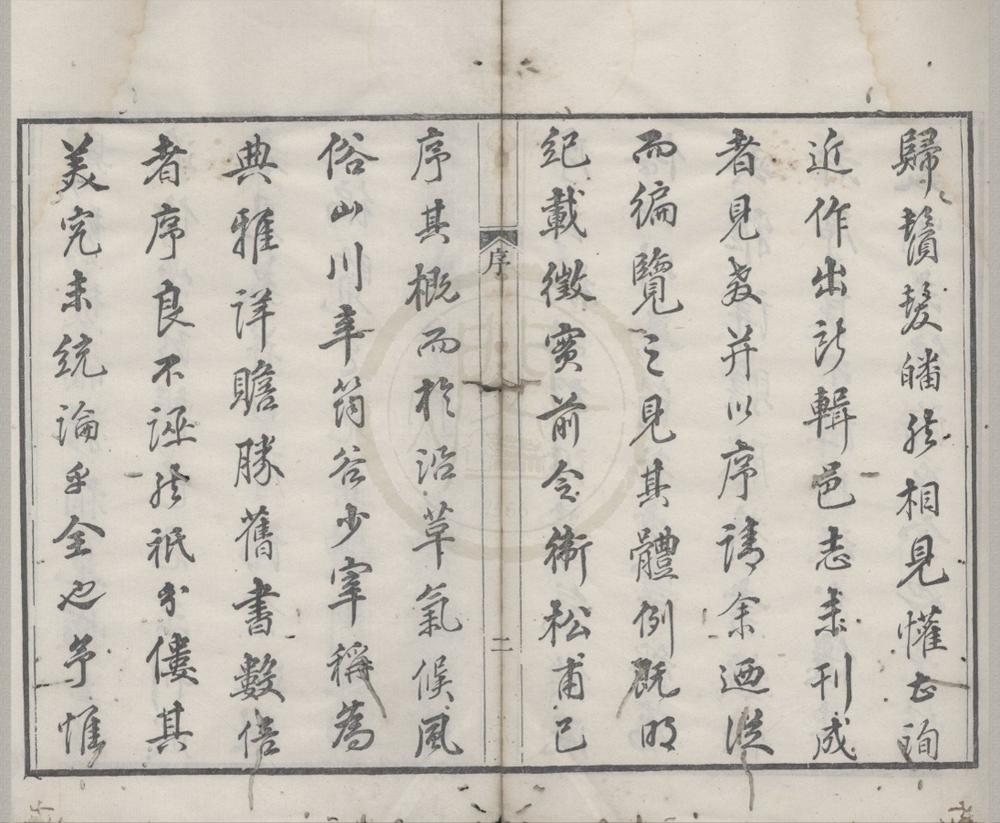 歸鬚髮皤然相見懽甚詢
近作出所輯邑志未刊成
者見教并以序請余迺從
而徧覽之見其體例既明
紀載徵實前令衛松甫已
序
二
序其概而於沿革氣候風
俗山川辛筠谷少宰稱為
典雅詳贍勝舊書數倍
者序良不誣然祇分僂其
美究未統論乎全也予惟